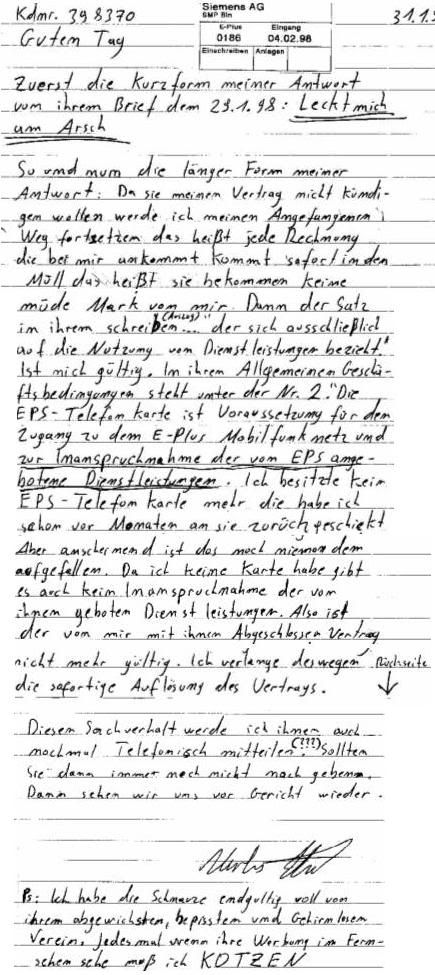 Kdnr. 398370
Siemens AG
SMP Bln
E-Plus Eingang
0186 04.02.98
Einschreiben Anlagen
31.1.
Gutem Tag
Zuerst die Kurzform meiner Antwort
vom ihrem Brief dem 29.1.98: Leckt mich
am Arsch
So und nun die länger Form meiner
Antwort: Da sie meinem Vertrag nicht kündi-
gen wollen werde ich meinen Angefangenen
Weg fortsetzen das heißt jede Rechnung
die bei mir ankommt kommt sofort in den
Müll das heißt sie bekommen keine
müde Mark von mir. Dann der Satz
(Auszug)
im ihrem schreiben "... der sich ausschließlich
auf die Nutzung von Dienstleistungen bezieht."
Ist nich gültig. In ihrem Allgemeinen Geschä-
ftsbedingungen steht unter der Nr. 2. "Die
EPS-Telefon karte ist Voraussetzung für den
Zugang zu dem E-Plus Mobilfunk netz und
zur Inanspruchnahme der von EPS ange-
botene Dienstleistungen. Ich besitzte kein
EPS-Telefon karte mehr die habe ich
schon vor Monaten an sie zurück geschickt
Aber anscheinend ist das noch niemandem
aufgefallen. Da ich keine Karte habe gibt
es auch kein Inanspruchnahme der von
ihnen geboten Dienst leistungen. Also ist
der von mir mit ihnen Abgeschlossen Vertrag
nicht mehr gültig. Ich verlange deswegen
die sofortige Auflösung des Vertrags.
Rückseite
Diesen Sachverhalt werde ich ihnen auch
nochmal Telefonisch mitteilen (???). Sollten
Sie dann immer noch nicht nach gebenn.
Dann sehen wir uns vor Gericht wieder.
Ps: Ich habe die Schnauze endgültig voll von
ihrem abgewichsten, bepissten und Gehirnlosen
Verein. Jedesmal wenn ihre Werbung im Fern-
sehen sehe muß ich KOTZEN